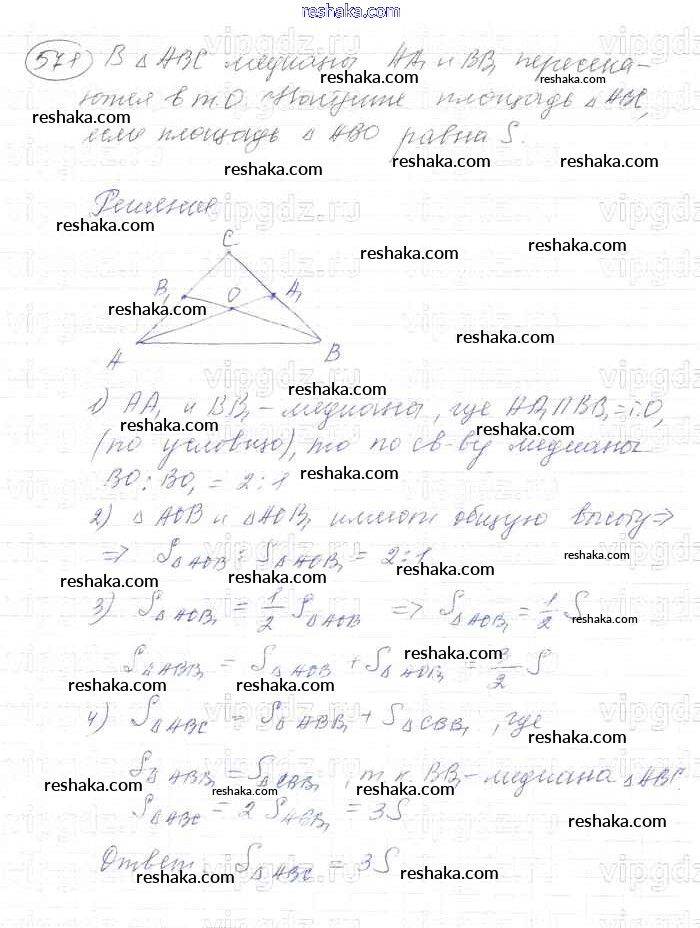 reshaka.com
578 В △ ABC медианы AA₁ и BB₁ пересека-
ются в т. O. Найдите площадь △ ABC,
если площадь △ ABO равна S.
Решение
C
B₁ O A₁
A B
1) AA₁ и BB₁ - медианы, где AA₁∩BB₁ = т.O,
(по условию), то по св-ву медианы
BO : BO₁ = 2 : 1
2) △ AOB и △AOB₁ имеют общую высоту ⇒
⇒ S△AOB : S△AOB₁ = 2:1
3) S△AOB₁ = 1/2 S△AOB ⇒ S△AOB₁ = 1/2 S
S△ABB₁ = S△AOB + S△AOB₁ = 3/2 S
4) S△ABC = S△ABB₁ + S△CBB₁, где
S△ABB₁ = S△CBB₁, т.к. BB₁ - медиана △ABC.
S△ABC = 2 S = 3S
Ответ S△ABC = 3S